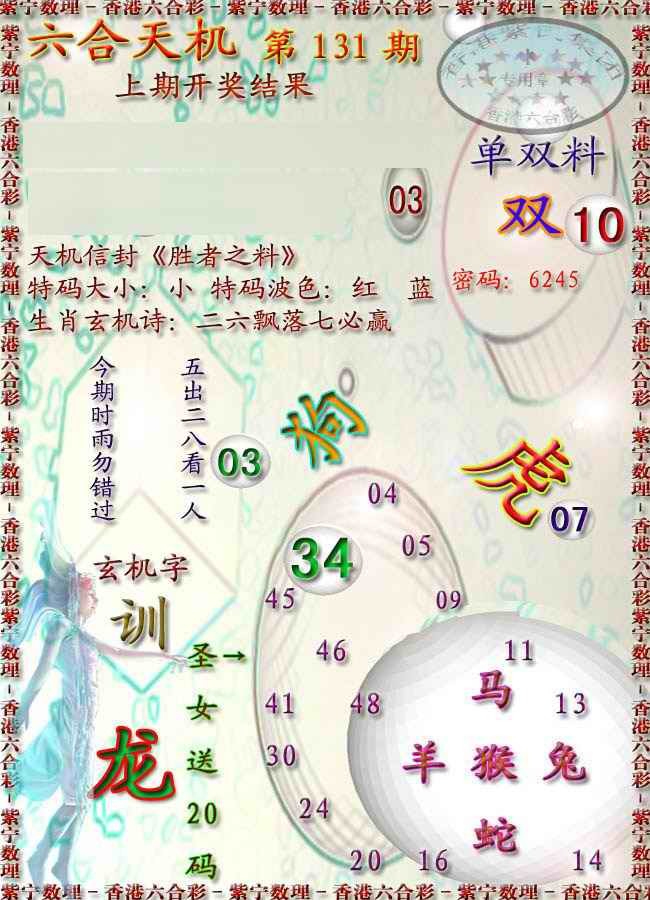 紫宁数理－香港六合彩－紫宁数理－香港六合彩－紫宁数理－香港六合彩
六合天机 第 131 期
上期开奖结果
专用章
香港六合彩
单双料
双 10
03
天机信封《胜者之料》
特码大小：小 特码波色：红 蓝
密码：6245
生肖玄机诗：二六飘落七必赢
今期时雨勿错过
五出二八看一人
03
狗
虎
07
34
04
05
45
09
46
11
41
48
13
30
24
20
16
14
玄机字
训
龙
圣→
女
送
20
码
马
羊 猴 兔
蛇
紫宁数理－香港六合彩－紫宁数理－香港六合彩－紫宁数理－香港六合彩